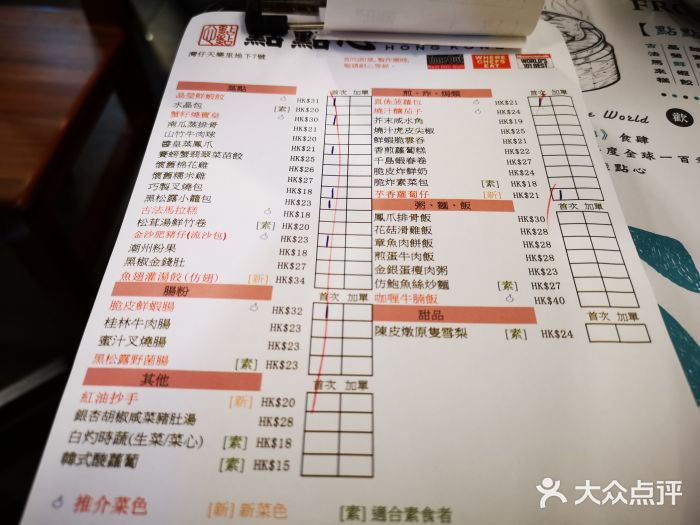 點點心
HONG KONG
灣仔天樂里地下7號
WHERE CHEFS EAT
WORLD'S 101 BEST
蒸點 首次 加單
晶瑩鮮蝦餃 HK$31
水晶包 [素] HK$20
蟹籽燒賣皇 HK$30
南瓜蒸排骨 HK$21
山竹牛肉球 HK$20
醬皇蒸鳳爪 HK$21
賽螃蟹翡翠菜苗餃 HK$30
懷舊棉花雞 HK$26
懷舊糯米雞 HK$27
巧製叉燒包 HK$18
黑松露小籠包 HK$23
古法馬拉糕 HK$18
松茸湯鮮竹卷 [素] HK$20
金沙肥豬仔(流沙包) HK$23
潮州粉果 HK$18
黑椒金錢肚 HK$27
魚翅灌湯餃(仿翅) [新] HK$34
腸粉 首次 加單
脆皮鮮蝦腸 HK$32
桂林牛肉腸 HK$23
蜜汁叉燒腸 HK$23
黑松露野菌腸 [素] HK$23
其他 首次 加單
紅油抄手 [新] HK$20
銀杏胡椒咸菜豬肚湯 HK$28
白灼時蔬(生菜/菜心) [素] HK$18
韓式酸蘿蔔 [素] HK$15
煎·炸·焗類 首次 加單
HK$21
燒汁釀茄子 HK$24
芥末咸水角 HK$19
燒汁虎皮尖椒 HK$25
鮮蝦脆雲吞 HK$26
香煎蘿蔔糕 HK$21
千島蝦春卷 HK$27
脆皮炸鮮奶 HK$18
脆炸素菜包 [素] HK$18
芋香蘿蔔仔 [新] HK$21
粥·麵·飯 首次 加單
鳳爪排骨飯 HK$30
花菇滑雞飯 HK$28
章魚肉餅飯 HK$28
煎蛋牛肉飯 HK$28
金銀蛋瘦肉粥 HK$23
仿鮑魚絲炒麵 [素] HK$27
咖喱牛腩飯 HK$40
甜品 首次 加單
陳皮燉原隻雪梨 [素] HK$24
推介菜色 [新] 新菜色 [素] 適合素食者
World
食肆
度全球一百
點心
大众点评